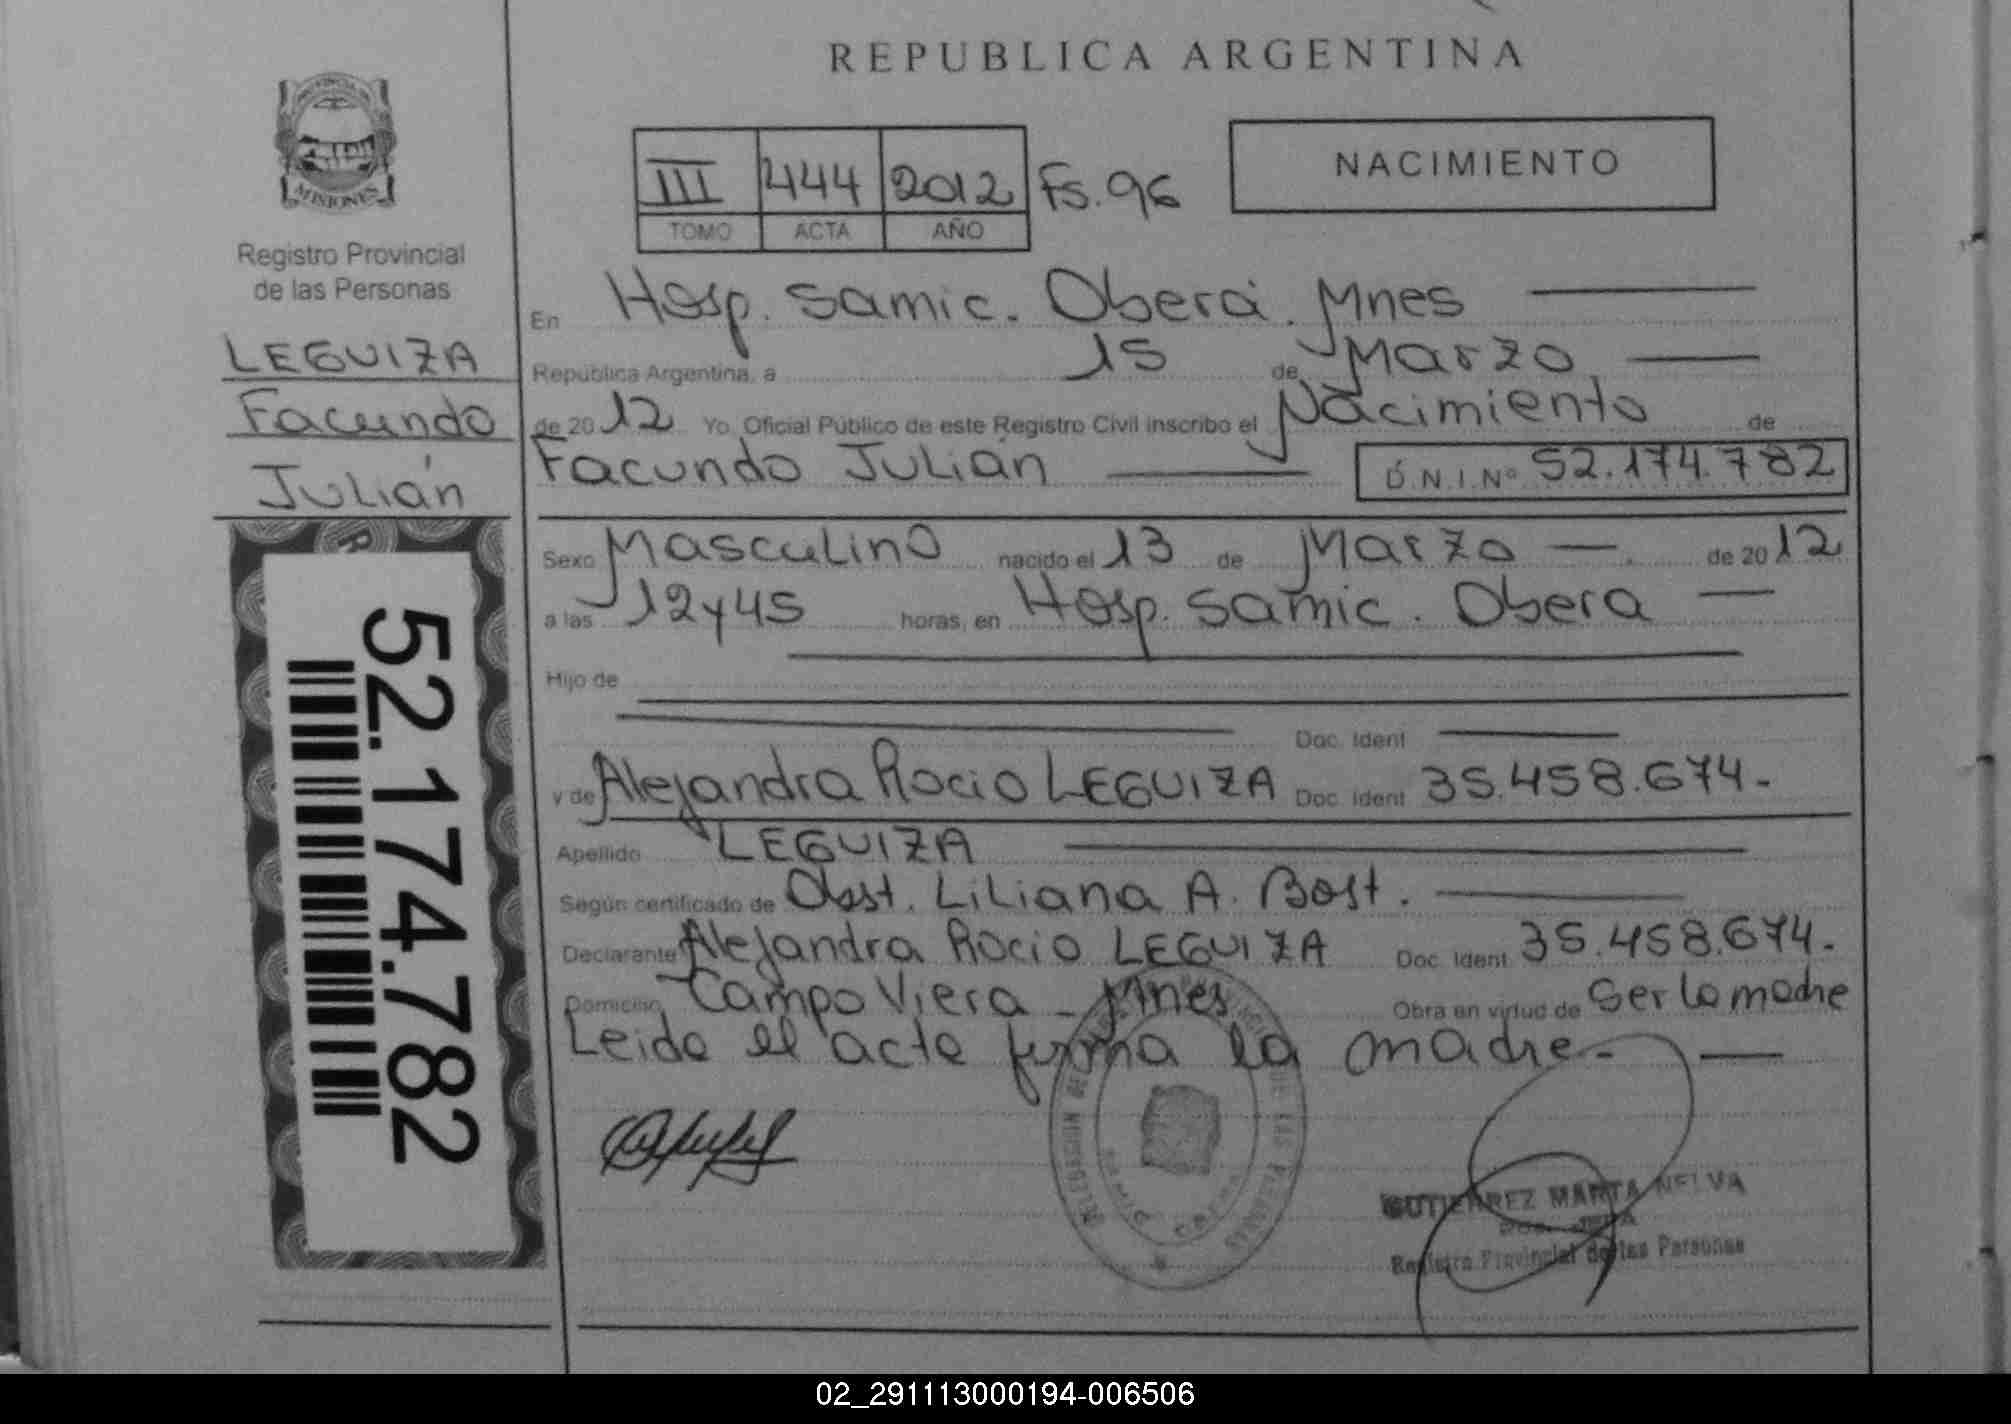 REPUBLICA ARGENTINA
PROVINCIA DE
MISIONES
Registro Provincial
de las Personas
LEGUIZA
Facundo
Julián
52.174.782
III 444 2012 Fs. 96
TOMO ACTA AÑO
NACIMIENTO
En Hosp. Samic. Oberá. Mnes
República Argentina, a 15 de Marzo
de 20 12 Yo, Oficial Público de este Registro Civil inscribo el Nacimiento de
Facundo Julián D.N.I.Nº 52.174.782
Sexo Masculino nacido el 13 de Marzo de 20 12
a las 12 y 45 horas, en Hosp. Samic. Obera
Hijo de
Doc. Ident
y de Alejandra Rocio LEGUIZA Doc. Ident 35.458.674.-
Apellido LEGUIZA
Según certificado de Obst. Liliana A. Bost.
Declarante Alejandra Rocio LEGUIZA Doc. Ident 35.458.674.-
Domicilio Campo Viera - Mnes Obra en virtud de ser la madre
Leida el acta firma la madre.-
GUTIERREZ MARTA NELVA
Registro Provincial de las Personas
02_291113000194-006506